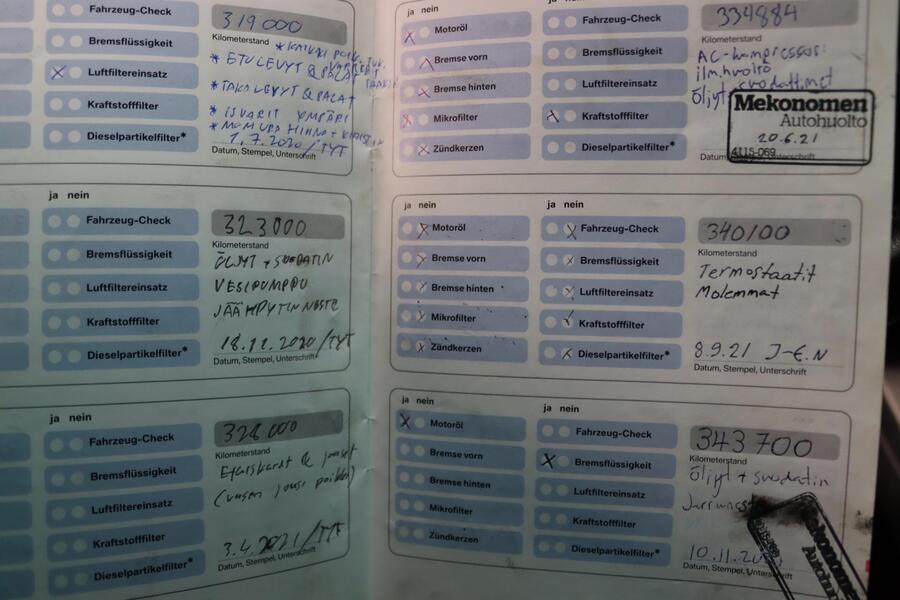 Fahrzeug-Check
Bremsflüssigkeit
Luftfiltereinsatz
Kraftstofffilter
Dieselpartikelfilter*
319000
Kilometerstand
* ETULEVYT & PALAT
* TAKALEVYT & PALAT
* ISKARIT YMPÄRI
1.7.2020/TYT
Datum, Stempel, Unterschrift
ja nein
Fahrzeug-Check
Bremsflüssigkeit
Luftfiltereinsatz
Kraftstofffilter
Dieselpartikelfilter*
323000
Kilometerstand
ÖLJYT + SUODATIN
VESIPUMPPU
JÄÄHDYTINNESTE
18.11.2020/TYT
Datum, Stempel, Unterschrift
ja nein
Fahrzeug-Check
Bremsflüssigkeit
Luftfiltereinsatz
Kraftstofffilter
Dieselpartikelfilter*
328000
Kilometerstand
Etuiskarit & jouset
(vasen jousi poikki)
3.4.2021/TYT
Datum, Stempel, Unterschrift
ja nein
Motoröl
Bremse vorn
Bremse hinten
Mikrofilter
Zündkerzen
Fahrzeug-Check
Bremsflüssigkeit
Luftfiltereinsatz
Kraftstofffilter
Dieselpartikelfilter*
334884
Kilometerstand
AC-kompressor
ilm.huolto
Öljyt suodattimet
Mekonomen
Autohuolto
20.6.21
4115-069
Datum
Unterschrift
ja nein
Motoröl
Bremse vorn
Bremse hinten
Mikrofilter
Zündkerzen
ja nein
Fahrzeug-Check
Bremsflüssigkeit
Luftfiltereinsatz
Kraftstofffilter
Dieselpartikelfilter*
340100
Kilometerstand
Termostaatit
Molemmat
8.9.21 J-E.N
Datum, Stempel, Unterschrift
ja nein
Motoröl
Bremse vorn
Bremse hinten
Mikrofilter
Zündkerzen
ja nein
Fahrzeug-Check
Bremsflüssigkeit
Luftfiltereinsatz
Kraftstofffilter
Dieselpartikelfilter*
343700
Kilometerstand
Öljyt + suodatin
10.11.20
Datum, Stempel, Unterschrift
Mekonomen